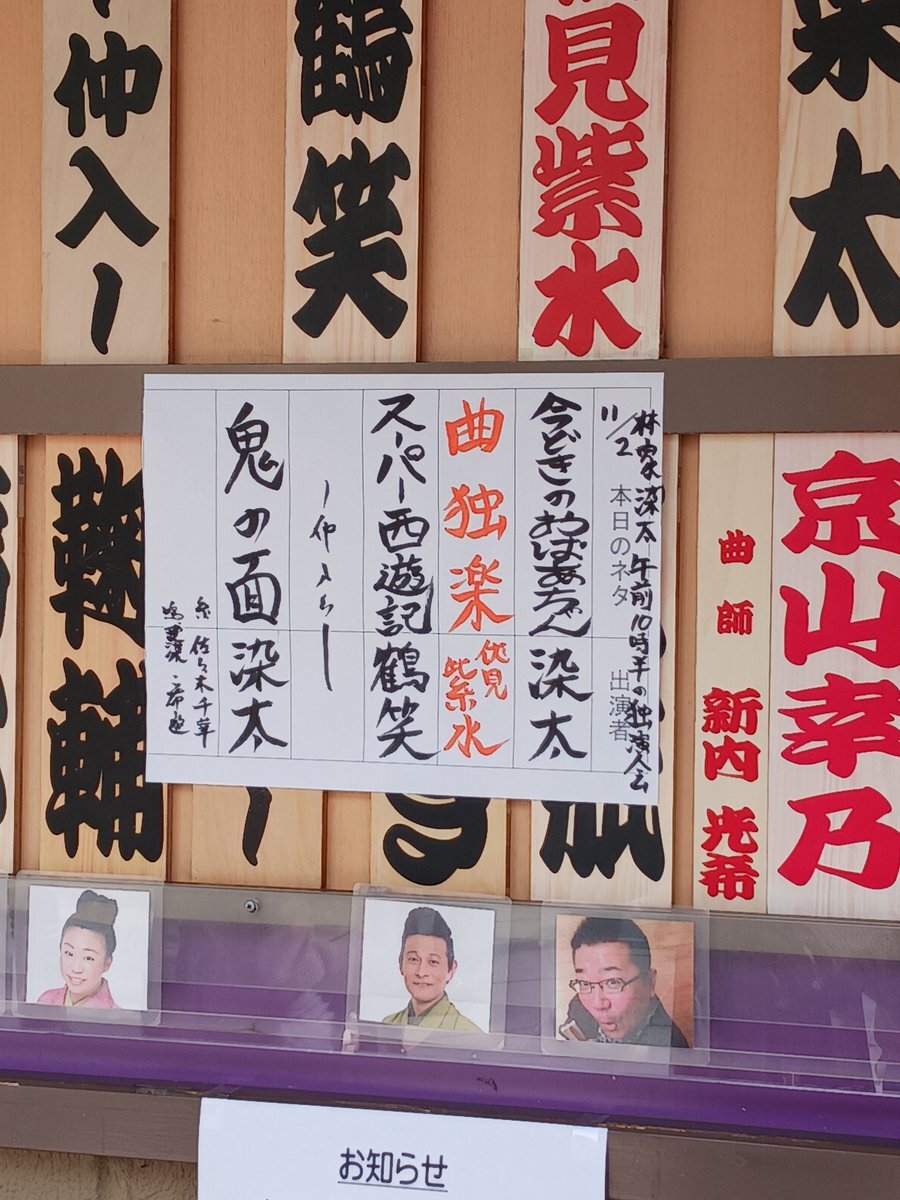 太
見紫水
鶴笑
仲入ー
林家染太 午前10時半の独演会
11/2 本日のネタ 出演者
今どきのおばあちゃん 染太
曲独楽 伏見紫水
スーパー西遊記 鶴笑
ー仲入りー
鬼の面 染太
糸 佐々木千華
京山幸乃
曲師 新内光希
輔
お知らせ